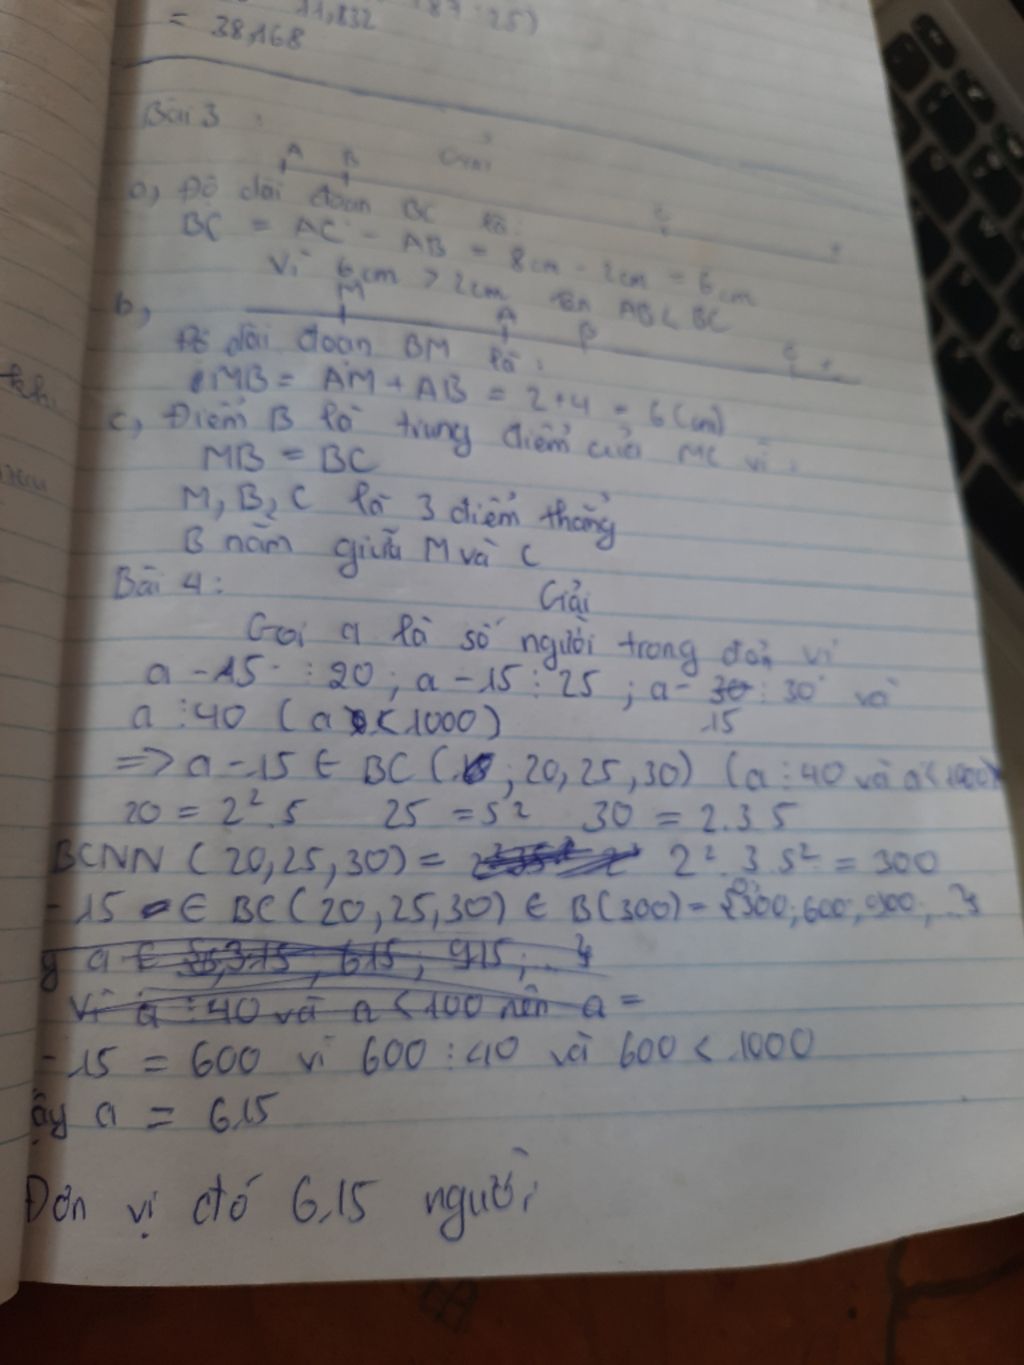 11,832 87.25)
= 38,168
Bài 3:
A B Giải
C
a, Độ dài đoạn BC là:
BC = AC - AB = 8cm - 2cm = 6cm
Vì 6cm > 2cm nên AB < BC
b,
M A B C
Độ dài đoạn BM là:
MB = AM + AB = 2+4 = 6(cm)
c, Điểm B là trung điểm của MC vì:
MB = BC
M, B, C là 3 điểm thẳng
B nằm giữa M và C
Bài 4: Giải
Gọi a là số người trong đơn vị
a - 15 ⋮ 20; a - 15 ⋮ 25; a - 15 ⋮ 30 và
a ⋮ 40 (a < 1000)
=> a - 15 ∈ BC( ; 20, 25, 30) (a ⋮ 40 và a < 1000)
20 = 2².5 25 = 5² 30 = 2.3.5
BCNN (20, 25, 30) = 2².3.5² = 300
-15 ∈ BC(20, 25, 30) ∈ B(300) = {300; 600; 900; ..}
y a ∈ 315; 615; 915; ..}
Vì a ⋮ 40 và a < 100 nên a =
-15 = 600 vì 600 ⋮ 40 và 600 < 1000
ậy a = 615
Đơn vị đó 615 người